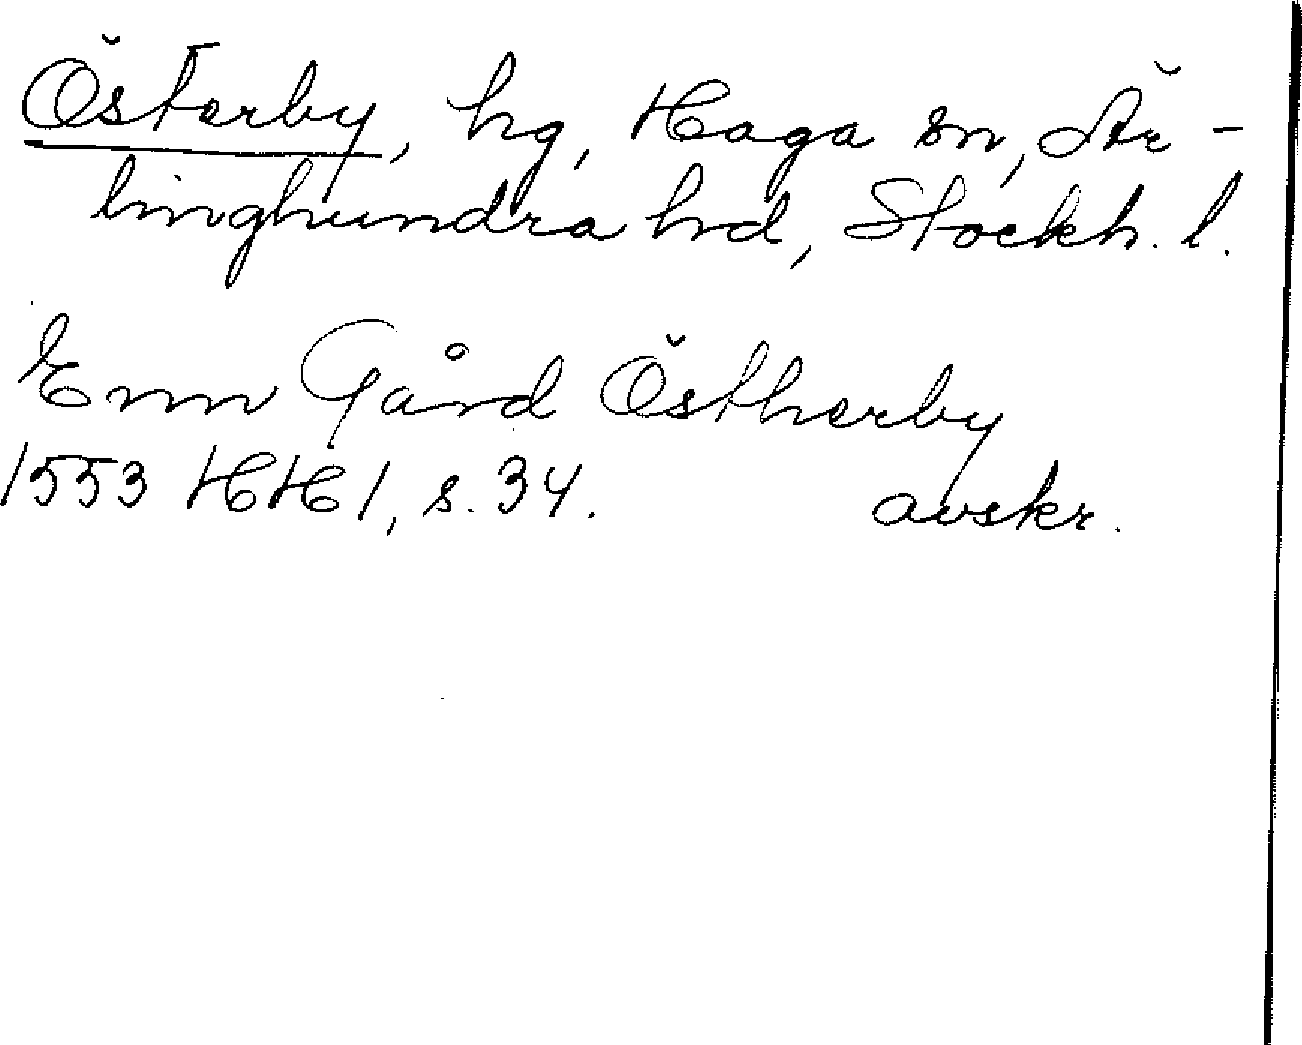 Österby, hg, Haga sn, Är-
linghundra hd, Stockh. l.
Enn Gård Östherby
1553 HH 1, s. 34. avskr.